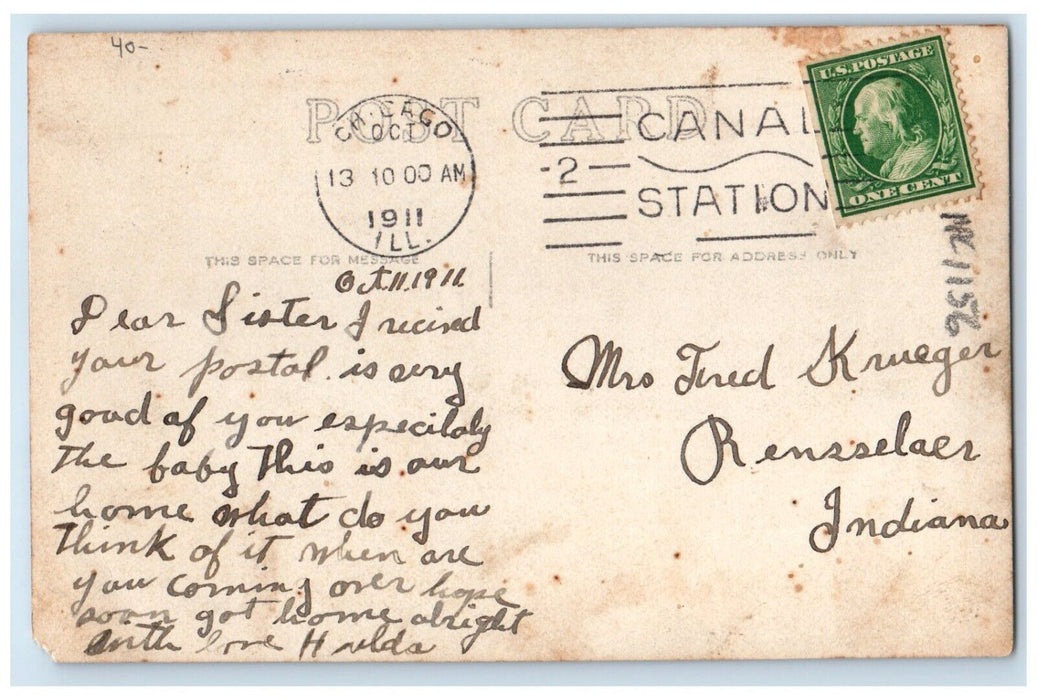 40-
POST CARD
CHICAGO
OCT
13 10 00 AM
1911
ILL.
CANAL
2
STATION
U.S. POSTAGE
ONE CENT
THIS SPACE FOR MESSAGE
THIS SPACE FOR ADDRESS ONLY
Oct.11.1911.
Dear Sister I recived
your postal. is very
good of you especilaly
the baby This is our
home what do you
think of it when are
you coming over hope
soon got home alright
with love Hulda
Mrs Fred Krueger
Rensselaer
Indiana